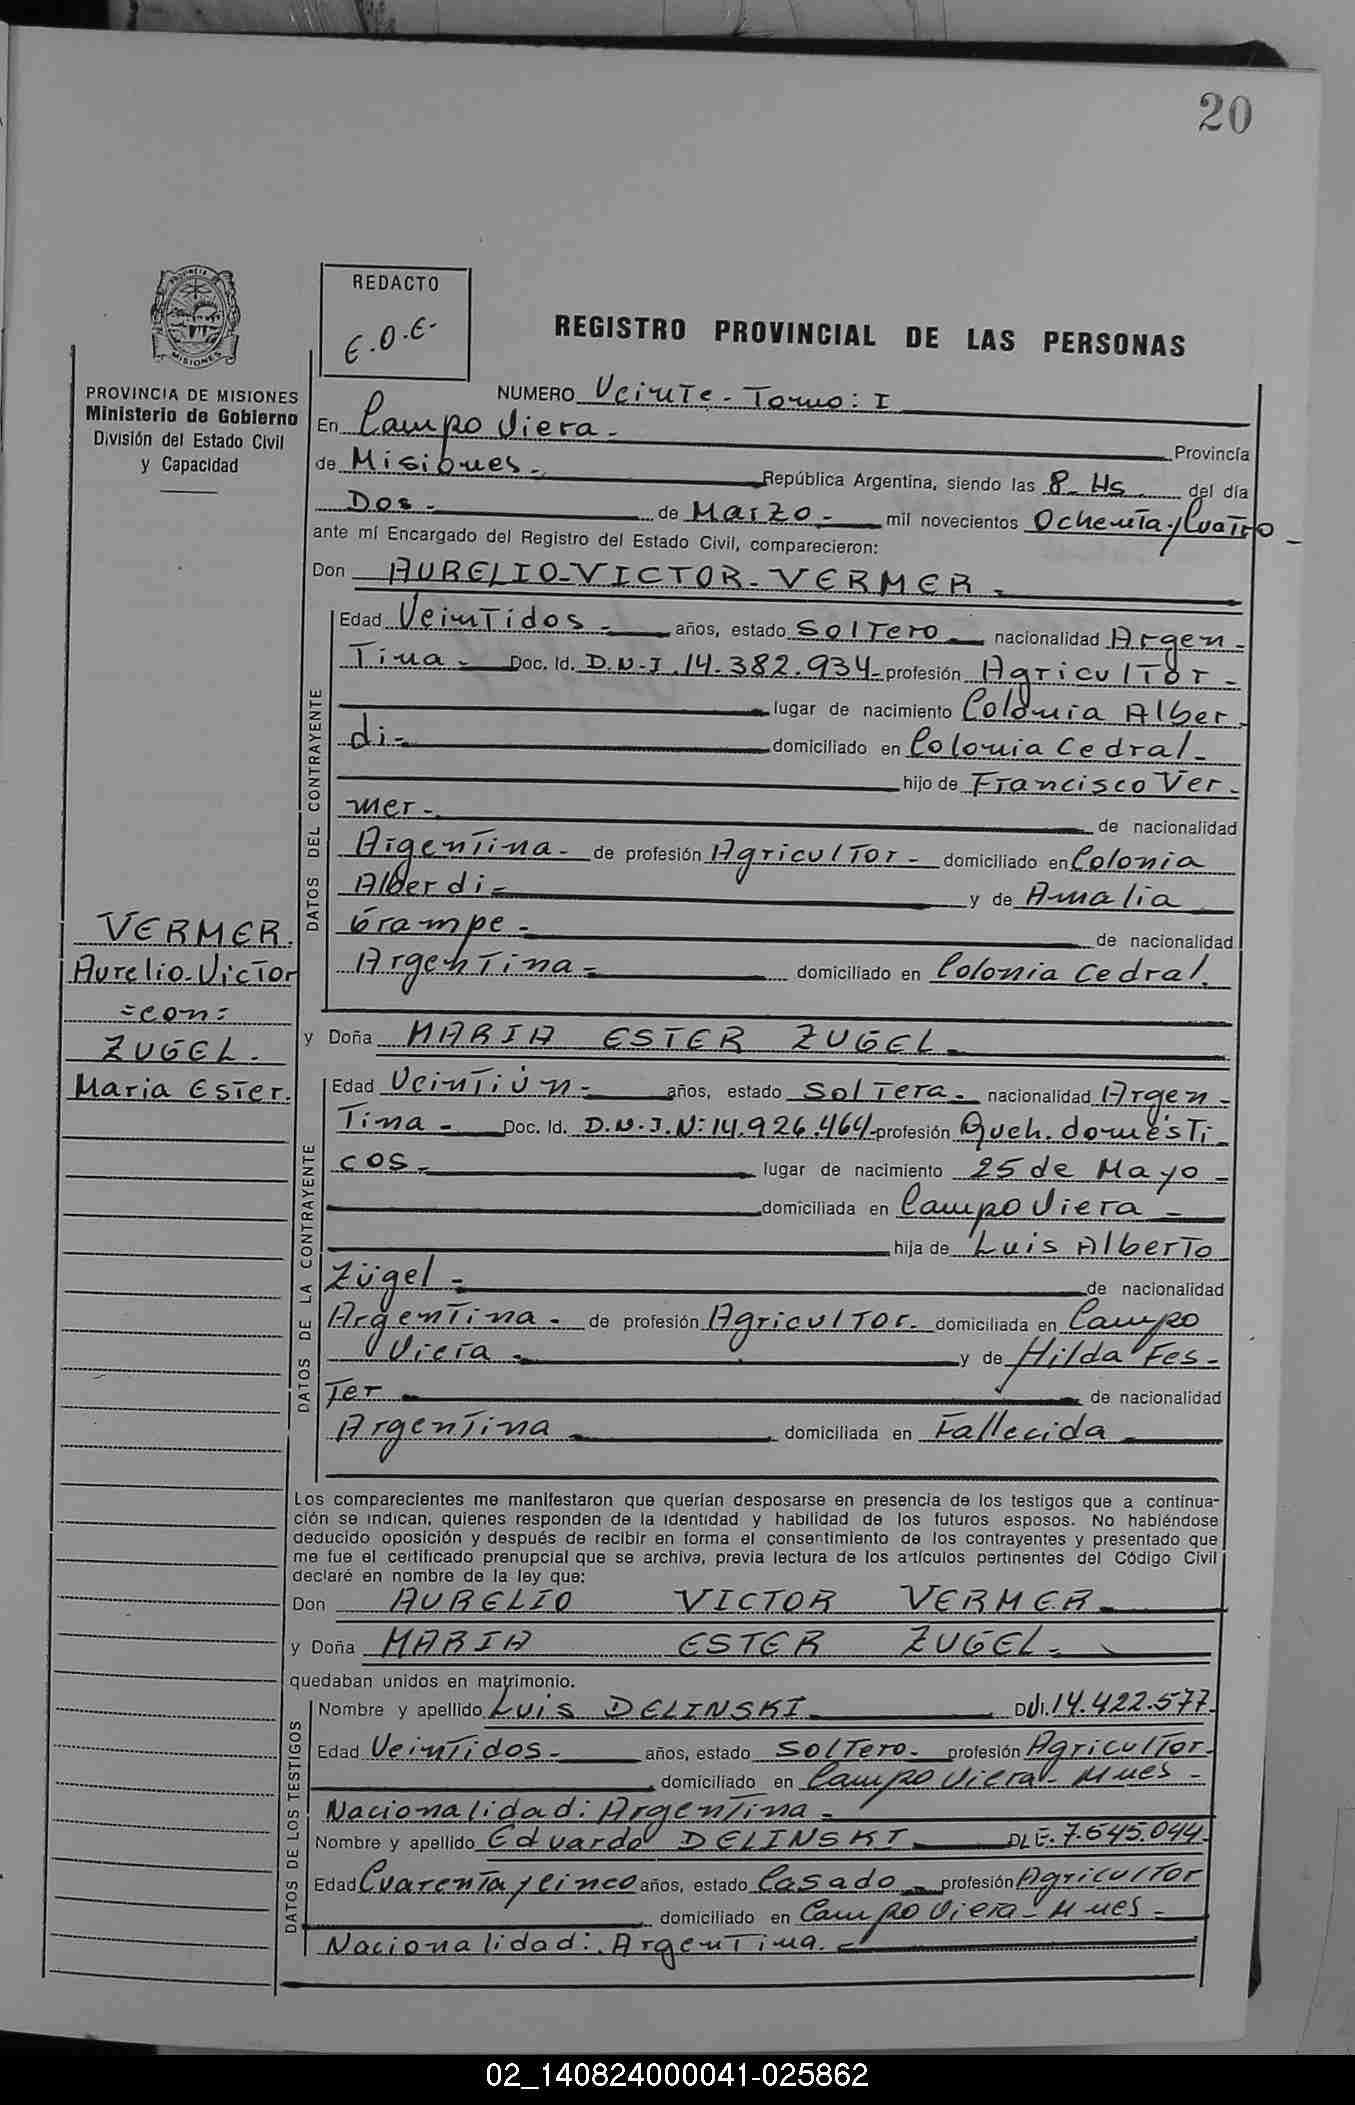 20
REDACTO
E.O.E-
REGISTRO PROVINCIAL DE LAS PERSONAS
MISIONES
PROVINCIA DE MISIONES
Ministerio de Gobierno
División del Estado Civil
y Capacidad
NUMERO Veinte - Tomo: I
En Campo Viera - Provincia
de Misiones - República Argentina, siendo las 8 Hs del día
Dos - de Marzo - mil novecientos Ochenta y Cuatro -
ante mí Encargado del Registro del Estado Civil, comparecieron:
Don AURELIO-VICTOR-VERMER -
DATOS DEL CONTRAYENTE
Edad Veintidos - años, estado Soltero - nacionalidad Argen -
Tina - Doc. Id. D.N.I. 14.382.934- profesión Agricultor -
lugar de nacimiento Colonia Alber -
di - domiciliado en Colonia Cedral -
hijo de Francisco Ver -
mer - de nacionalidad
Argentina - de profesión Agricultor - domiciliado en Colonia
Alberdi - y de Amalia
Grampe - de nacionalidad
Argentina - domiciliado en Colonia Cedral.
VERMER.
Aurelio-Victor
=con=
ZUGEL.
Maria Ester.
y Doña MARIA ESTER ZUGEL -
DATOS DE LA CONTRAYENTE
Edad Veintiún - años, estado Soltera - nacionalidad Argen -
Tina - Doc. Id. D.N.I. N: 14.926.464- profesión Queh. domésti -
cos - lugar de nacimiento 25 de Mayo -
domiciliada en Campo Viera -
hija de Luis Alberto
Zügel - de nacionalidad
Argentina - de profesión Agricultor - domiciliada en Campo
Viera - y de Hilda Fes -
Ter - de nacionalidad
Argentina - domiciliada en Fallecida -
Los comparecientes me manifestaron que querían desposarse en presencia de los testigos que a continua-
ción se indican, quienes responden de la identidad y habilidad de los futuros esposos. No habiéndose
deducido oposición y después de recibir en forma el consentimiento de los contrayentes y presentado que
me fue el certificado prenupcial que se archiva, previa lectura de los artículos pertinentes del Código Civil
declaré en nombre de la ley que:
Don AURELIO VICTOR VERMER -
y Doña MARIA ESTER ZUGEL -
quedaban unidos en matrimonio.
DATOS DE LOS TESTIGOS
Nombre y apellido Luis DELINSKI DNI. 14.422.577.
Edad Veintidos - años, estado Soltero - profesión Agricultor -
domiciliado en Campo Viera - Mnes -
Nacionalidad: Argentina -
Nombre y apellido Eduardo DELINSKI D L E. 7.645.044.
Edad Cuarenta y cinco años, estado Casado - profesión Agricultor
domiciliado en Campo Viera - Mnes -
Nacionalidad: Argentina -
02_140824000041-025862